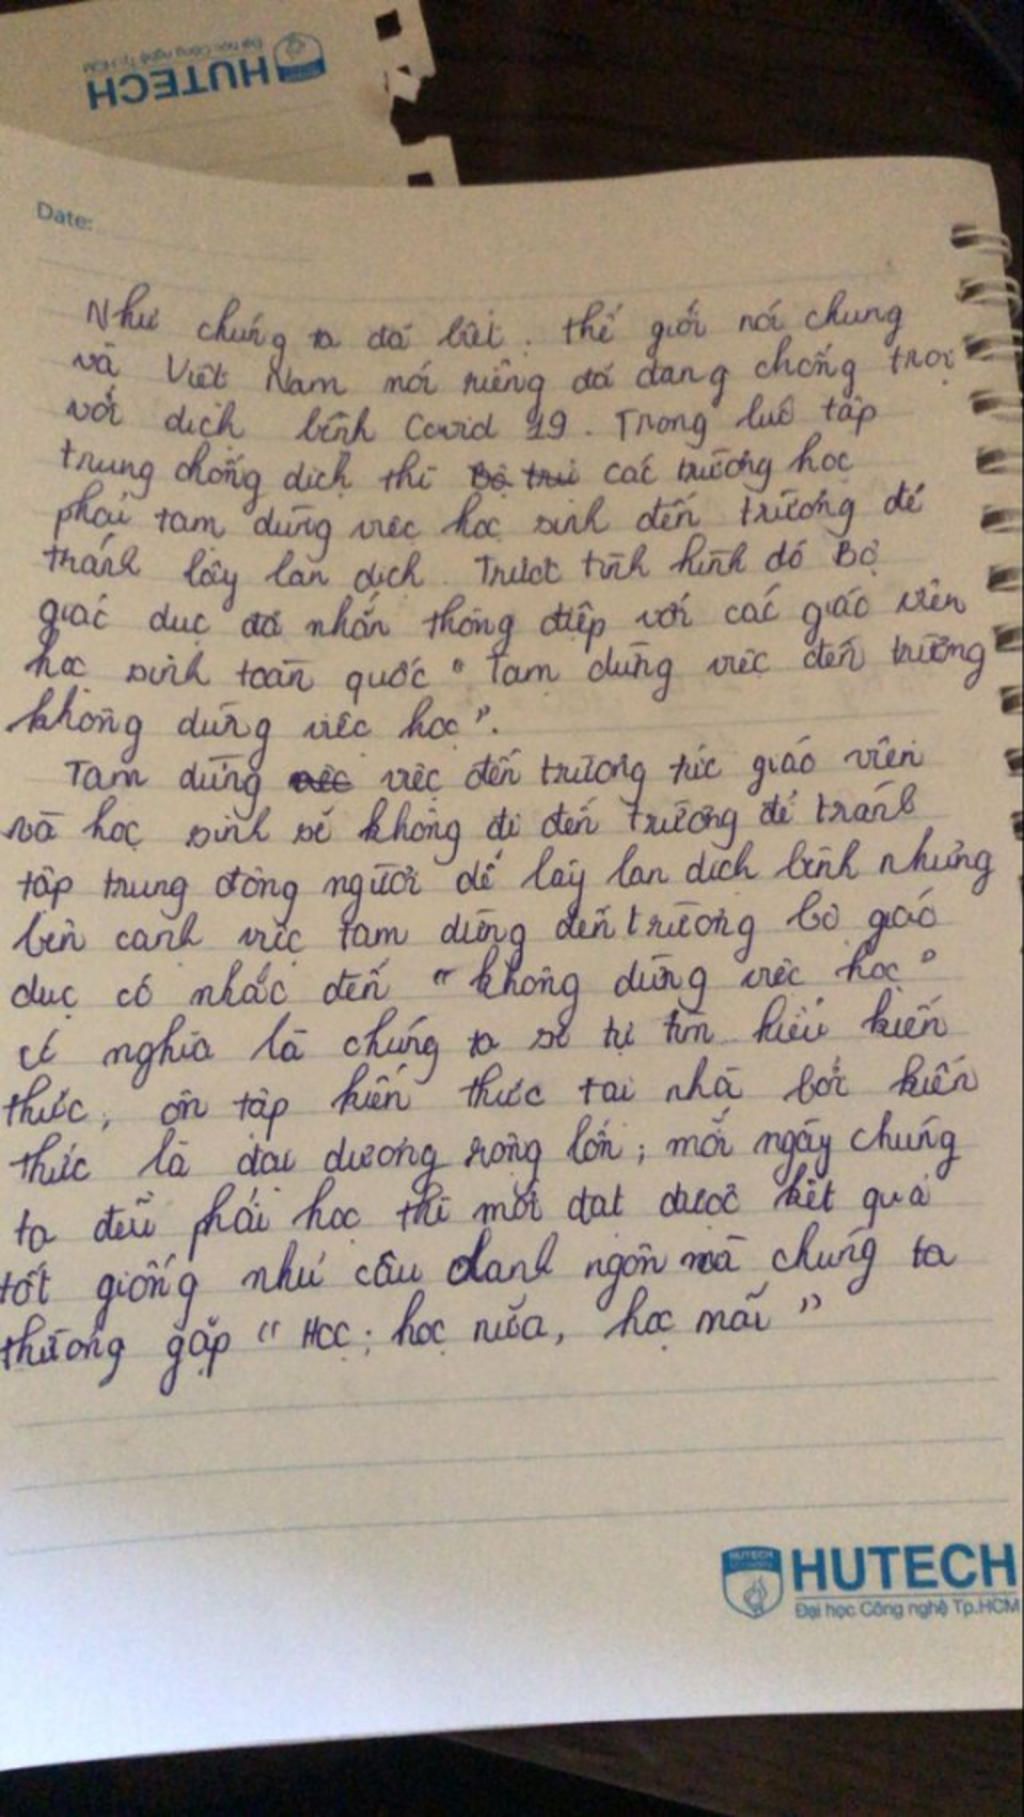 HUTECH
Đại học Công nghệ Tp.HCM
Date:
Như chúng ta đã biết. thế giới nói chung
và Việt Nam nói riêng đã đang chống trọi
với dịch bệnh Covid 19. Trong lúc tập
trung chống dịch thì các trường học
phải tạm dừng việc học sinh đến trường để
tránh lây lan dịch. Trước tình hình đó Bộ
giáo dục đã nhắn thông điệp với các giáo viên
học sinh toàn quốc "Tạm dừng việc đến trường
không dừng việc học".
Tạm dừng việc đến trường tức giáo viên
và học sinh sẽ không đi đến trường để tránh
tập trung đông người dễ lây lan dịch bệnh nhưng
bên cạnh việc tạm dừng đến trường bộ giáo
dục có nhắc đến "không dừng việc học"
ý nghĩa là chúng ta sẽ tự tìm hiểu kiến
thức, ôn tập kiến thức tại nhà bởi kiến
thức là đại dương rộng lớn; mỗi ngày chúng
ta đều phải học thì mới đạt được kết quả
tốt giống như câu danh ngôn mà chúng ta
thường gặp "Học; học nữa, học mãi"
HUTECH
HUTECH
Đại học Công nghệ Tp.HCM